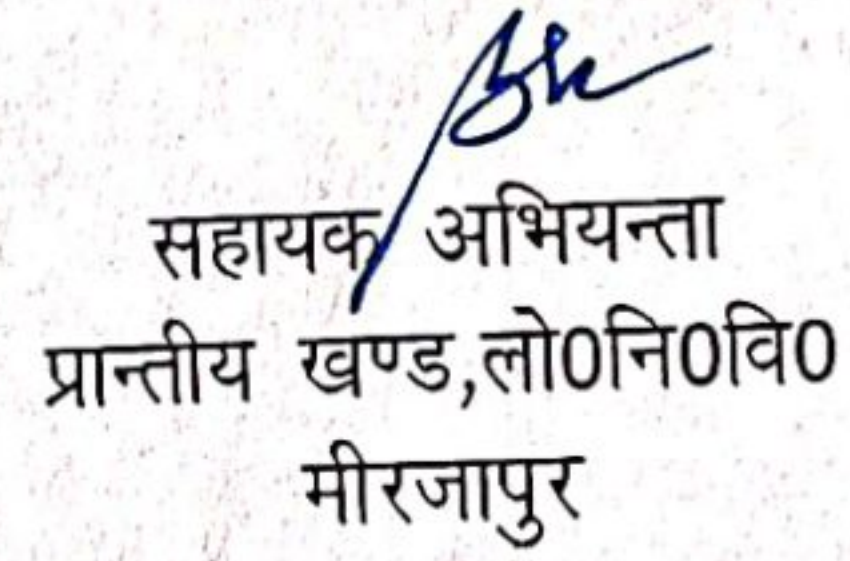 सहायक अभियन्ता
प्रान्तीय खण्ड,लो0नि0वि0
मीरजापुर